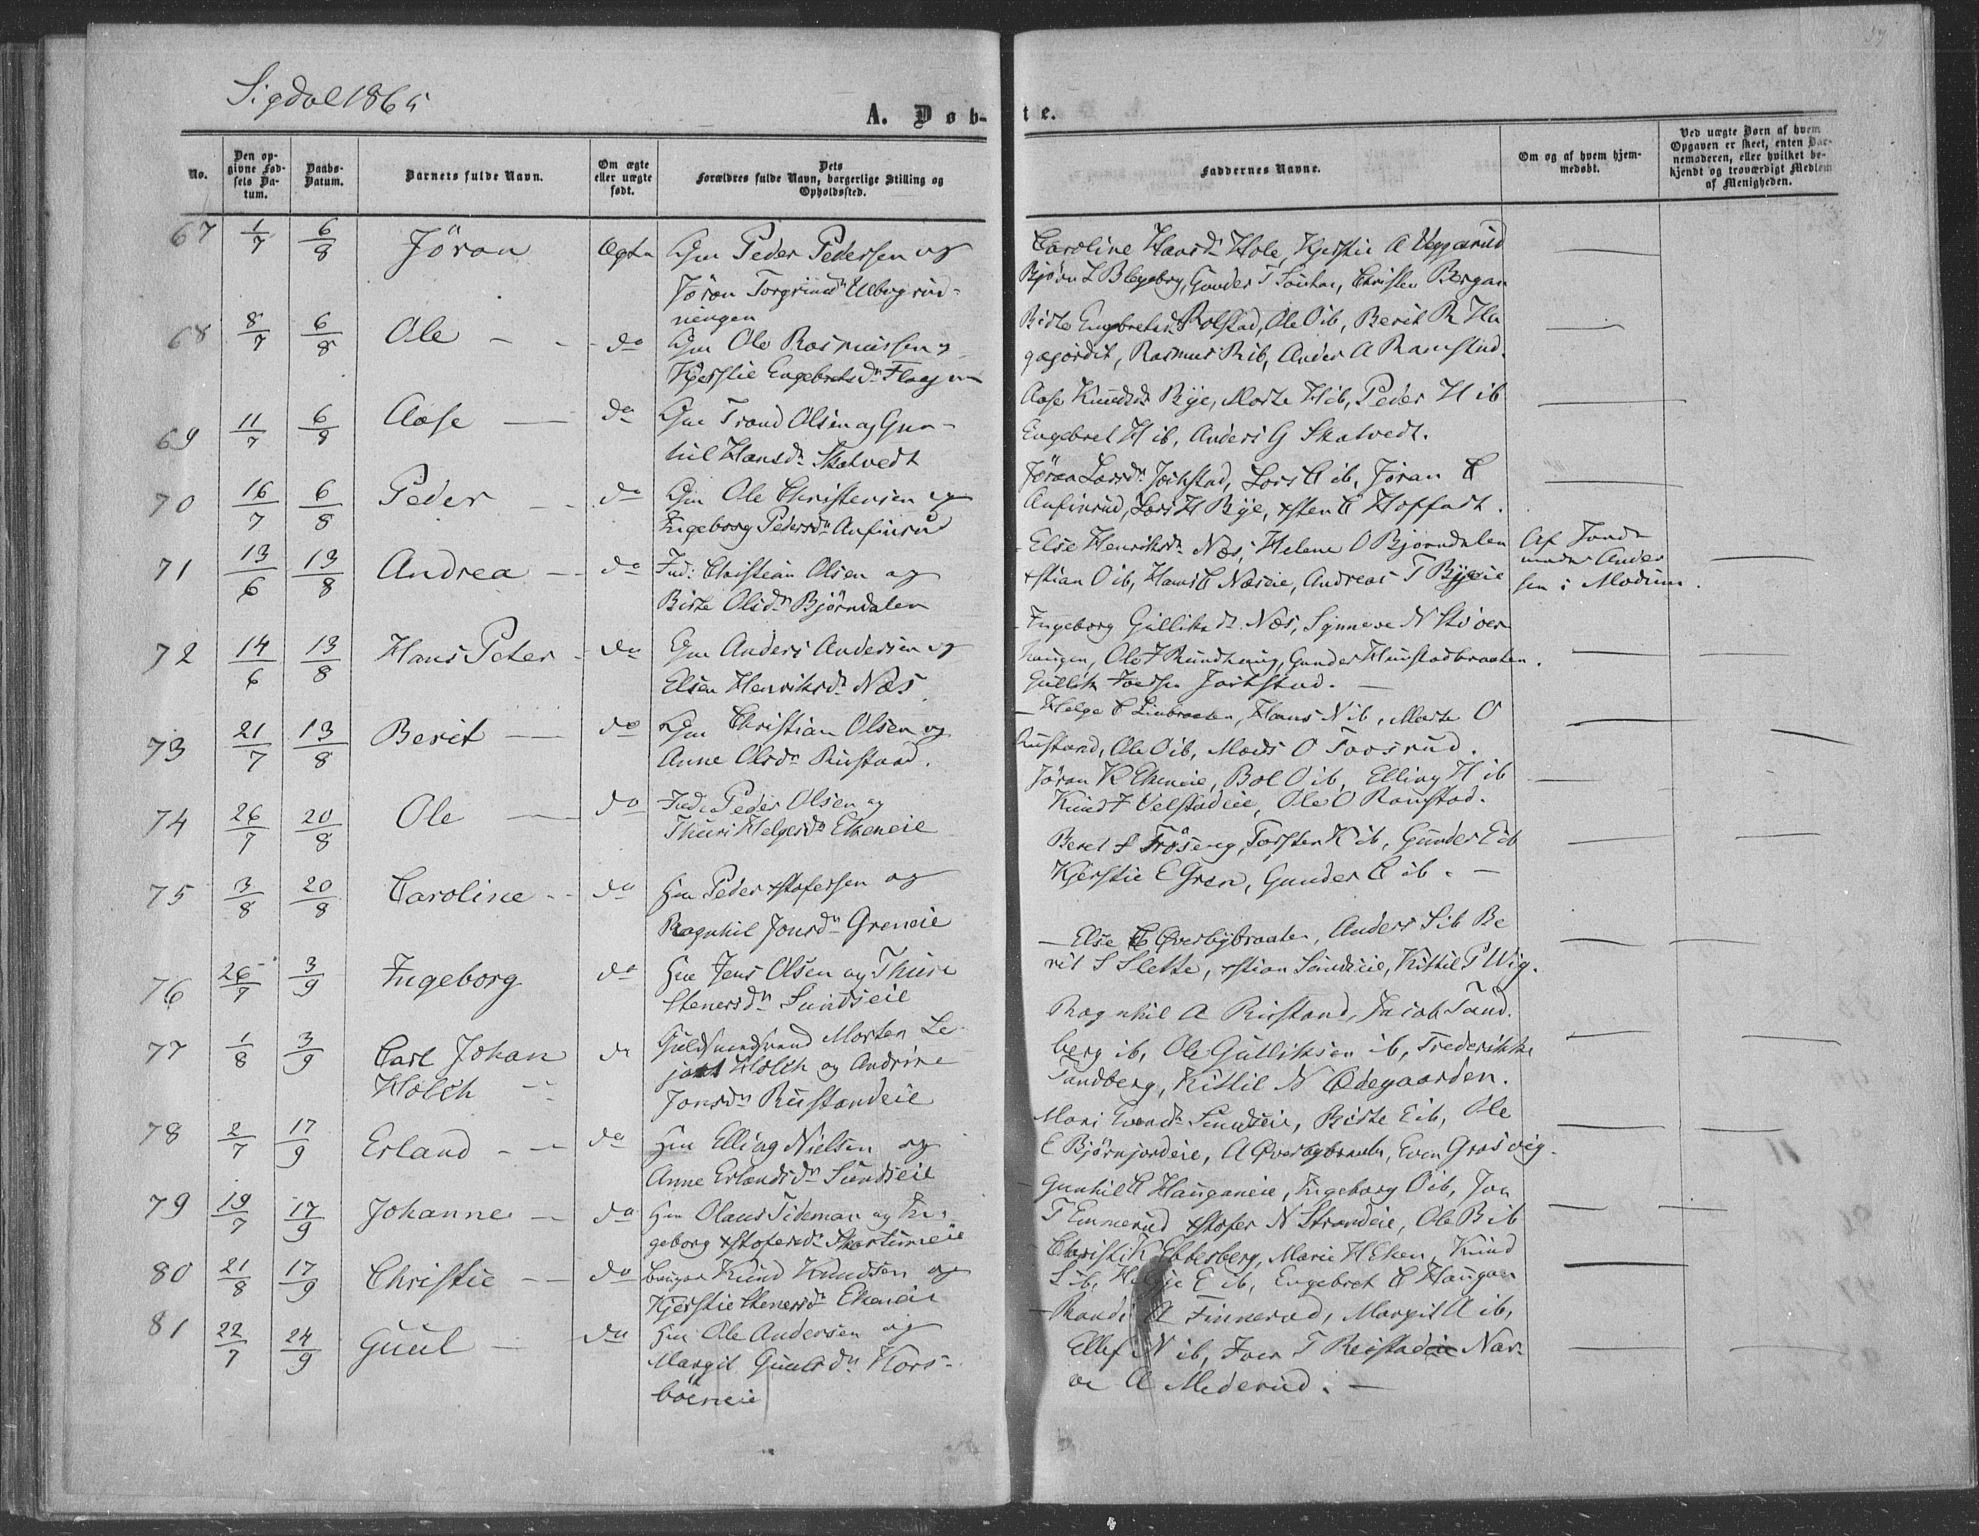 Sigdal 1865
A. Døb-
te.
No.
Den op-
givne Fød-
sels Da-
tum.
Daabs-
Datum.
Barnets fulde Navn.
Om ægte
eller uægte
født.
Dets
Forældres fulde Navn, borgerlige Stilling og
Opholdssted.
Faddernes Navne.
Om og af hvem hjem-
medøbt.
Ved uægte Børn af hvem
Opgaven er skeet, enten Bar-
nemoderen, eller hvilket be-
kjendt og troværdigt Medlem
af Menigheden.
67 1/7 6/8 Jöran Ægte Gm Peder Pedersen og
Jöran Torgrimsdr
ningen
Caroline Hansdr Hole, Kjerstie A Veggerud
Bjørn L Blegeberg, Gunder T, Christen Bergan
68 8/7 6/8 Ole do Gm Ole Rasmussen og
Kjerstie Engebretsdr
Birte Engebretsdr Rolstad, Ole O ib, Berit R Ha
gagordet, Rasmus R ib, Anders A Ramstad.
69 11/7 6/8 Aase do Gm Trond Olsen og Gun-
hil Hansdr Skatvedt
Aase Knudsdr Bye, Marte H ib, Peder H ib
Engebret H ib, Anders G Skatvedt.
70 16/7 6/8 Peder do Gm Ole Christensen og
Ingeborg Pedersdr Anfinrud
Jöran Larsdr Jokstad, Lars C ib, Jöran C
Anfinrud, Lars H Bye, xsten C Hoffart.
71 13/6 13/8 Andrea do Ind: Christian Olsen og
Birte Olsdr Bjørndalen
Else Henriksdr Næs, Helene O Bjørndalen
xstian O ib, Hans C Næseie, Andreas T Byeie
Af Jord-
moder Ander
sen i Modum.
72 14/6 13/8 Hans Peter do Gm Anders Andersen og
Elsen Henriksdr Næs
Ingeborg Gulliksdr Næs, Synneve N
haugen, Ole J Rundhaug, Gunder Hunstadbraaten.
Gullik Joensen Jokstad.
73 21/7 13/8 Berit do Gm Christian Olsen og
Anne Olsdr Rustand.
Helge C Linbraaten, Hans N ib, Marte O
Rustand, Ole O ib, Mads O Toosrud.
74 26/7 20/8 Ole do Ind Peder Olsen og
Thuri Helgesdr Ekeneie
Jöran K Ekeneie, Bol O ib, Elling H ib
Knud F Velstadeie, Ole O Ramstad.
75 3/8 20/8 Caroline do Hm Peder xstofersen og
Ragnhil Jonsdr Greneie
Beret S Frøseng, Torsten K ib, Gunder E ib
Kjerstie E Gren, Gunder C ib.
76 26/7 3/9 Ingeborg do Hm Jens Olsen og Thuri
Stenersdr Sundseie
Else C Øverbybraaten, Anders S ib Be
rit S Slette, xstian Sundseie, Kittil P Wig.
77 1/8 3/9 Carl Johan
Holck do Guldsmedsvend Morten Le
Holck og Andrine
Jonsdr Rustandeie
Ragnhil A Rustand, Jacob Sand.
berg ib, Ole Gulliksen ib, Frederikke
Sandberg, Kittil N Ødegaarden.
78 2/7 17/9 Erland do Hm Elling Nielsen og
Anne Erlandsdr Sundseie
Mari Evensdr Sundseie, Birte E ib, Ole
E Bjørnjordeie, A Øverbybraaten, Even Grosvig.
79 19/7 17/9 Johanne do Hm Olaus Tideman og In-
geborg xstofersdr Skartumeie
Gunhil C Hauganeie, Ingeborg O ib, Jon
T Emmerud xstofer N Strandeie, Ole B ib
80 21/8 17/9 Christie do Knud Knudsen og
Kjerstie Stenersdr Ekeneie
Christi K Ebbesberg, Marie H Eken, Knud
S ib, Helge E ib, Engebret C Haugan
81 22/7 24/9 Guul do Hm Ole Andersen og
Margit Guulsdr Kors-
böeneie
Randi A Finnerud, Margit A ib,
Ellef N ib, Joen T Reistadeie Nar-
ve A Mederud.